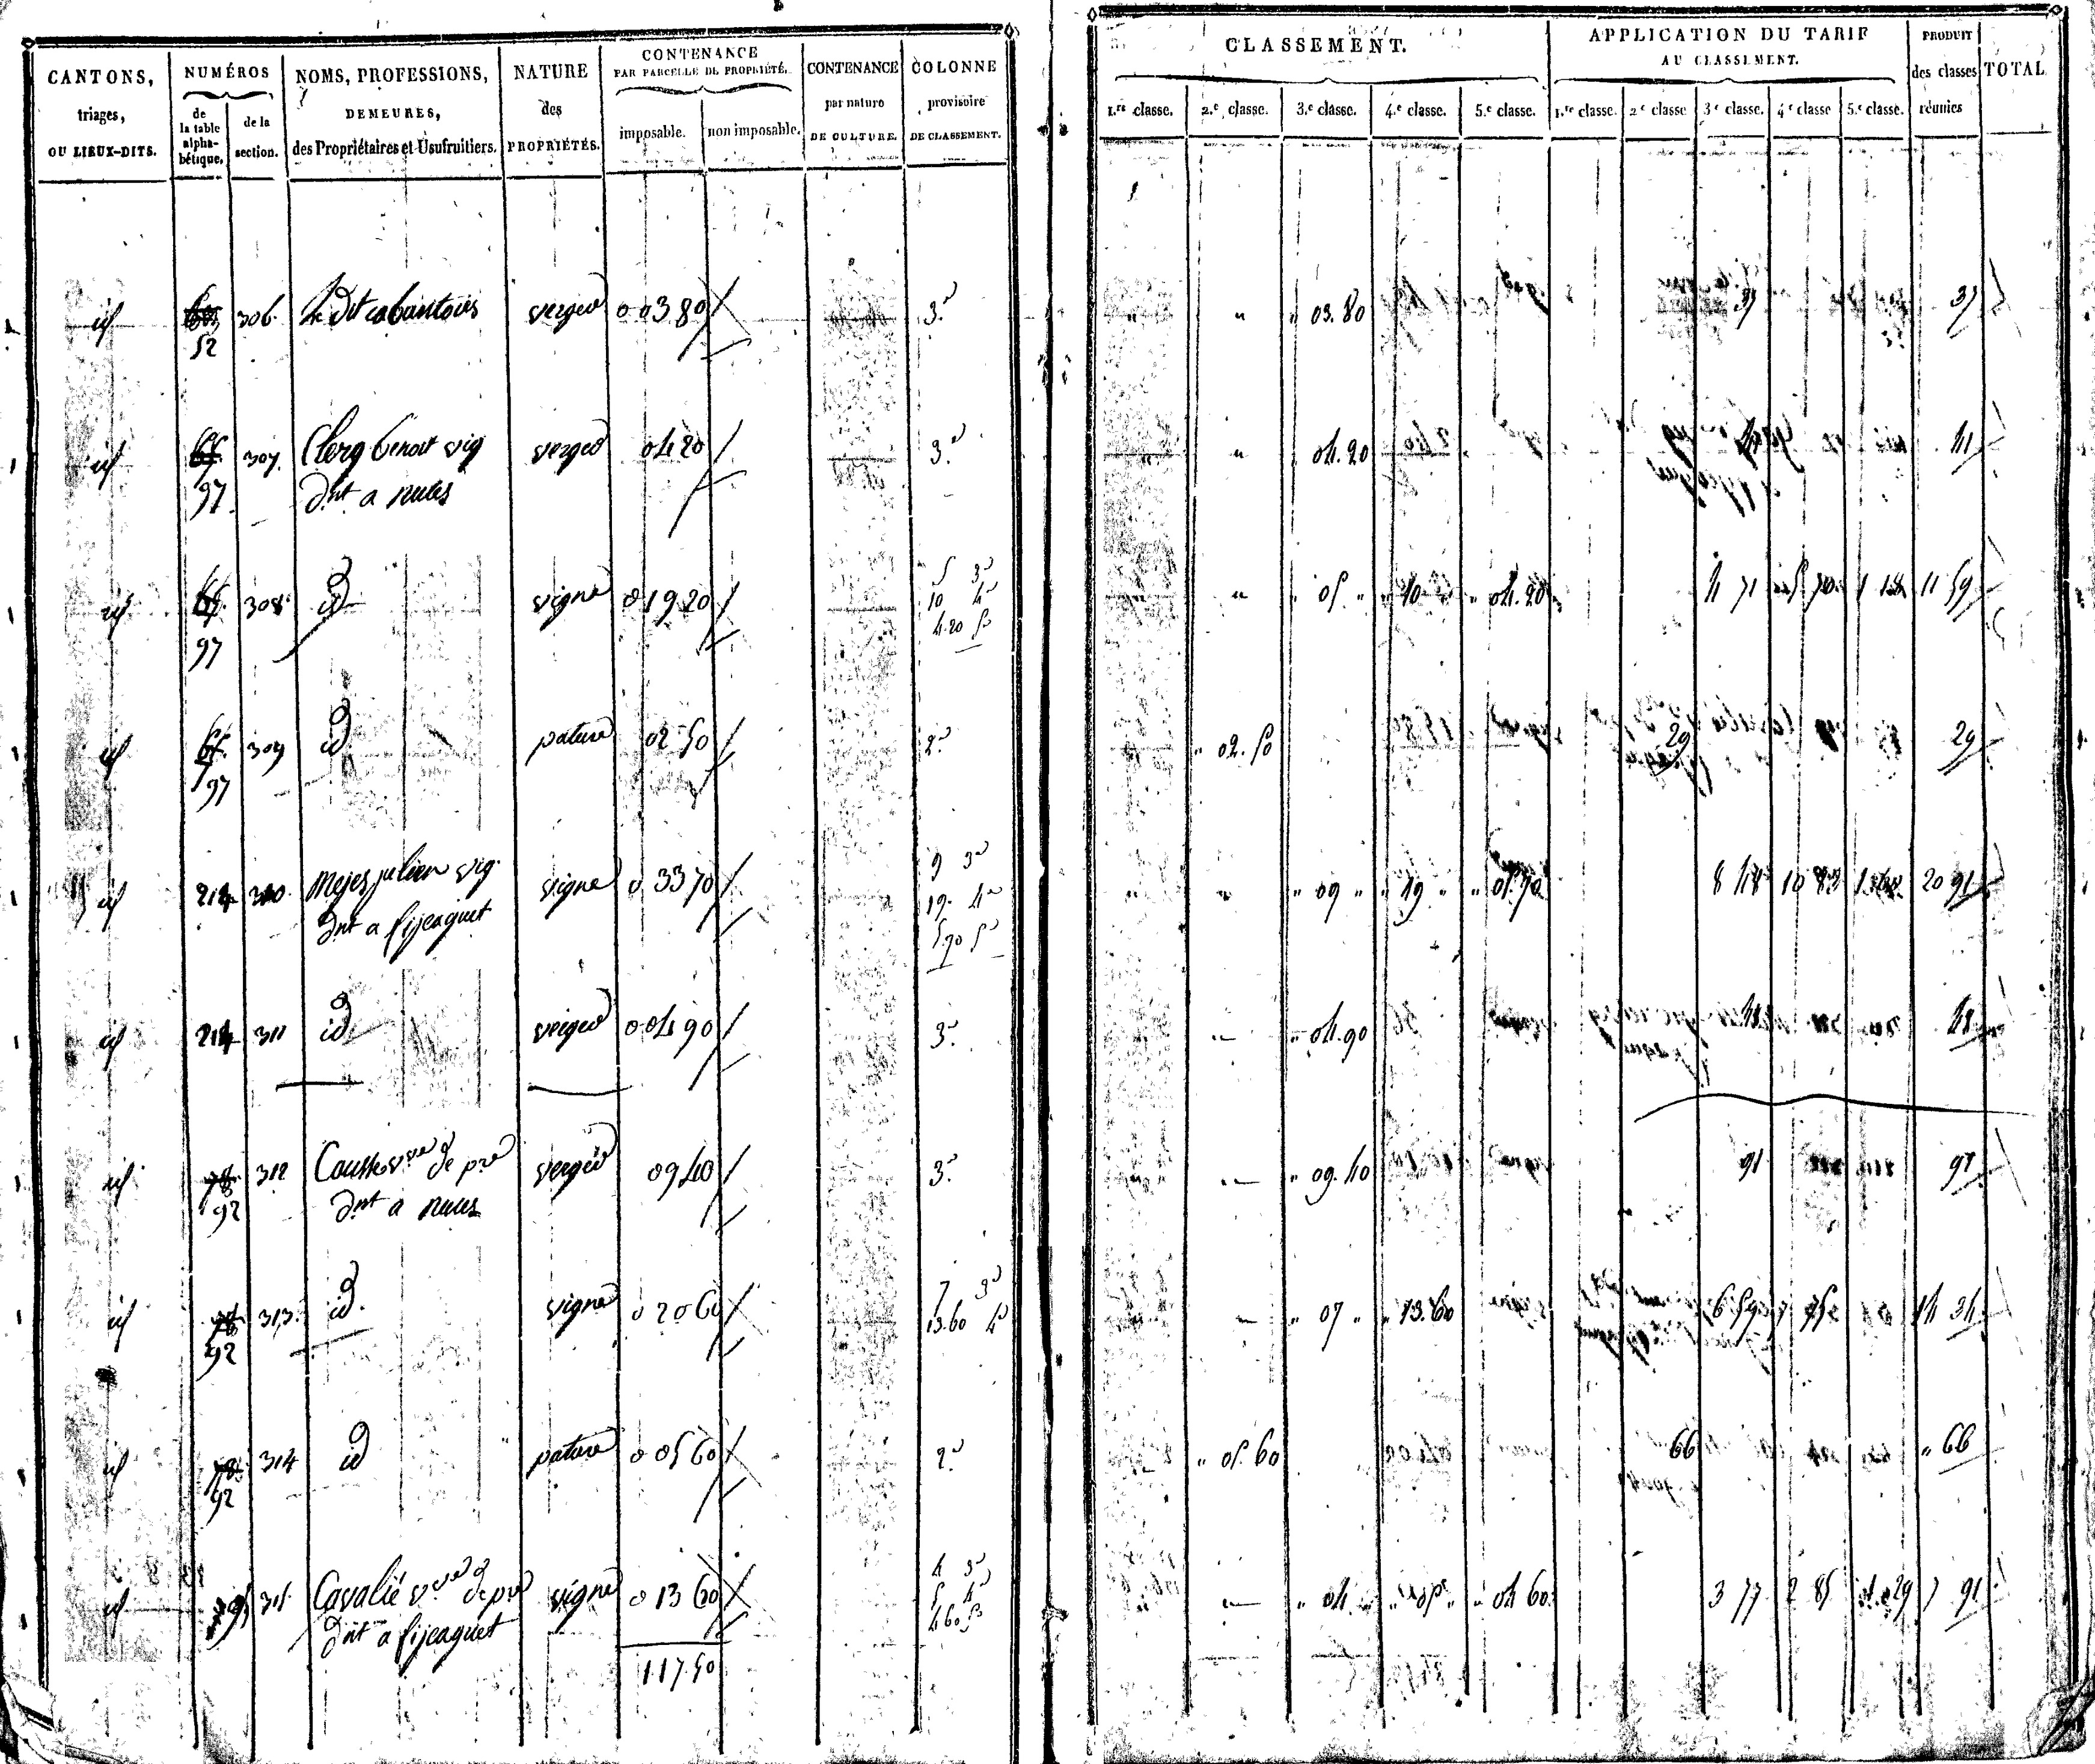 CANTONS,
triages,
OU LIEUX-DITS.
NUMÉROS
de la table alpha-bétique,
de la section.
NOMS, PROFESSIONS,
DEMEURES,
des Propriétaires et Usufruitiers.
NATURE
des
PROPRIÉTÉS.
CONTENANCE
PAR PARCELLE DE PROPRIÉTÉ.
imposable. non imposable.
CONTENANCE
par nature
DE CULTURE.
COLONNE
provisoire
DE CLASSEMENT.
CLASSEMENT.
1.re classe. 2.e classe. 3.e classe. 4.e classe. 5.e classe.
APPLICATION DU TARIF
AU CLASSEMENT.
1.re classe. 2.e classe 3.e classe. 4.e classe 5.e classe.
PRODUIT
des classes
réunies
TOTAL
id 306. verger 0 03 80 3.e 03. 80 37 37
52
id 307. Clerg benoit vig verger 04 20 3.e 04. 20 41 41
97 dnt a
id 308. id vigne 0 19 20 5 3e 05 10 04. 20 4 71 5 70 11 59
97 10 4e
4.20 5e
id 309 id pature 02 50 2.e 02. 50 29 29
97
id 214 310. Mejes julien vig. vigne 0 33 70 9 3e 09 19 05.70 8 48 10 83 20 91
dnt a fijeaguet 19. 4e
5.70 5e
id 214 311 id verger 0 04 90 3.e 04. 90 48 48
id 312 de verger 09 40 3.e 09. 40 91 91
92 dnt a
id 313. id. vigne 0 20 60 7 3e 07 13. 60 6 59 7 75 14 34
92 13.60 4e
id 314 id pature 0 05 60 2.e 05. 60 66 66
92
id 315 Cavalié vigne 0 13 60 4 3e 04. 05 04 60 3 77 2 85 1 29 7 91
dnt a fijeaguet 5 4e
4 60 5e
1.17.50